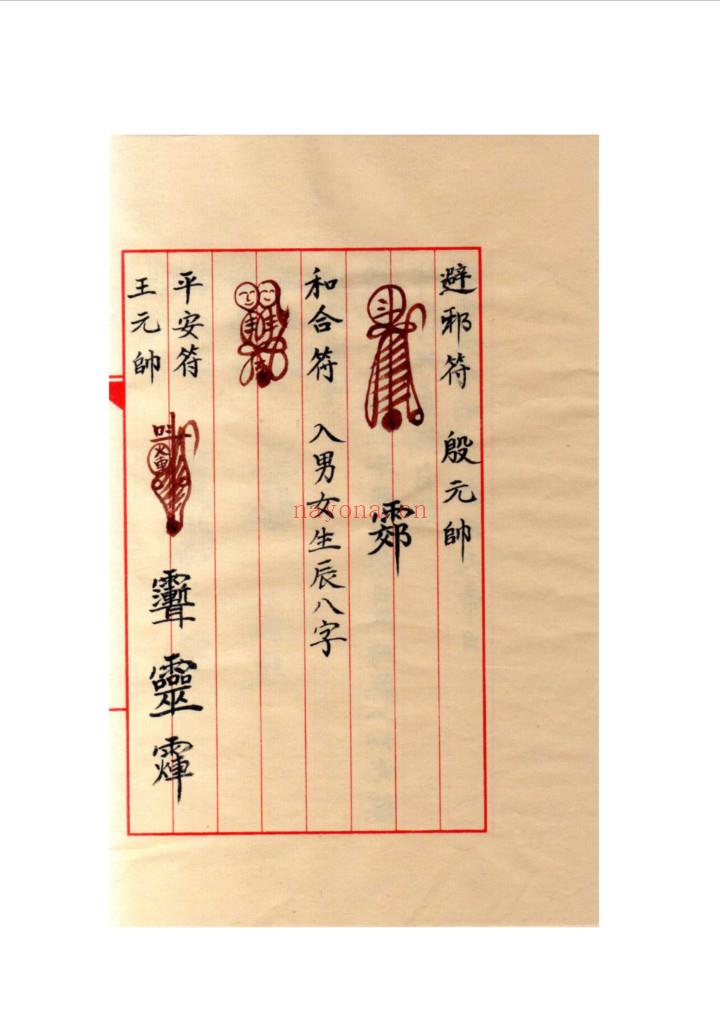 避邪符 殷元帥
和合符 入男女生辰八字
平安符
王元帥
靈
nayona.cn